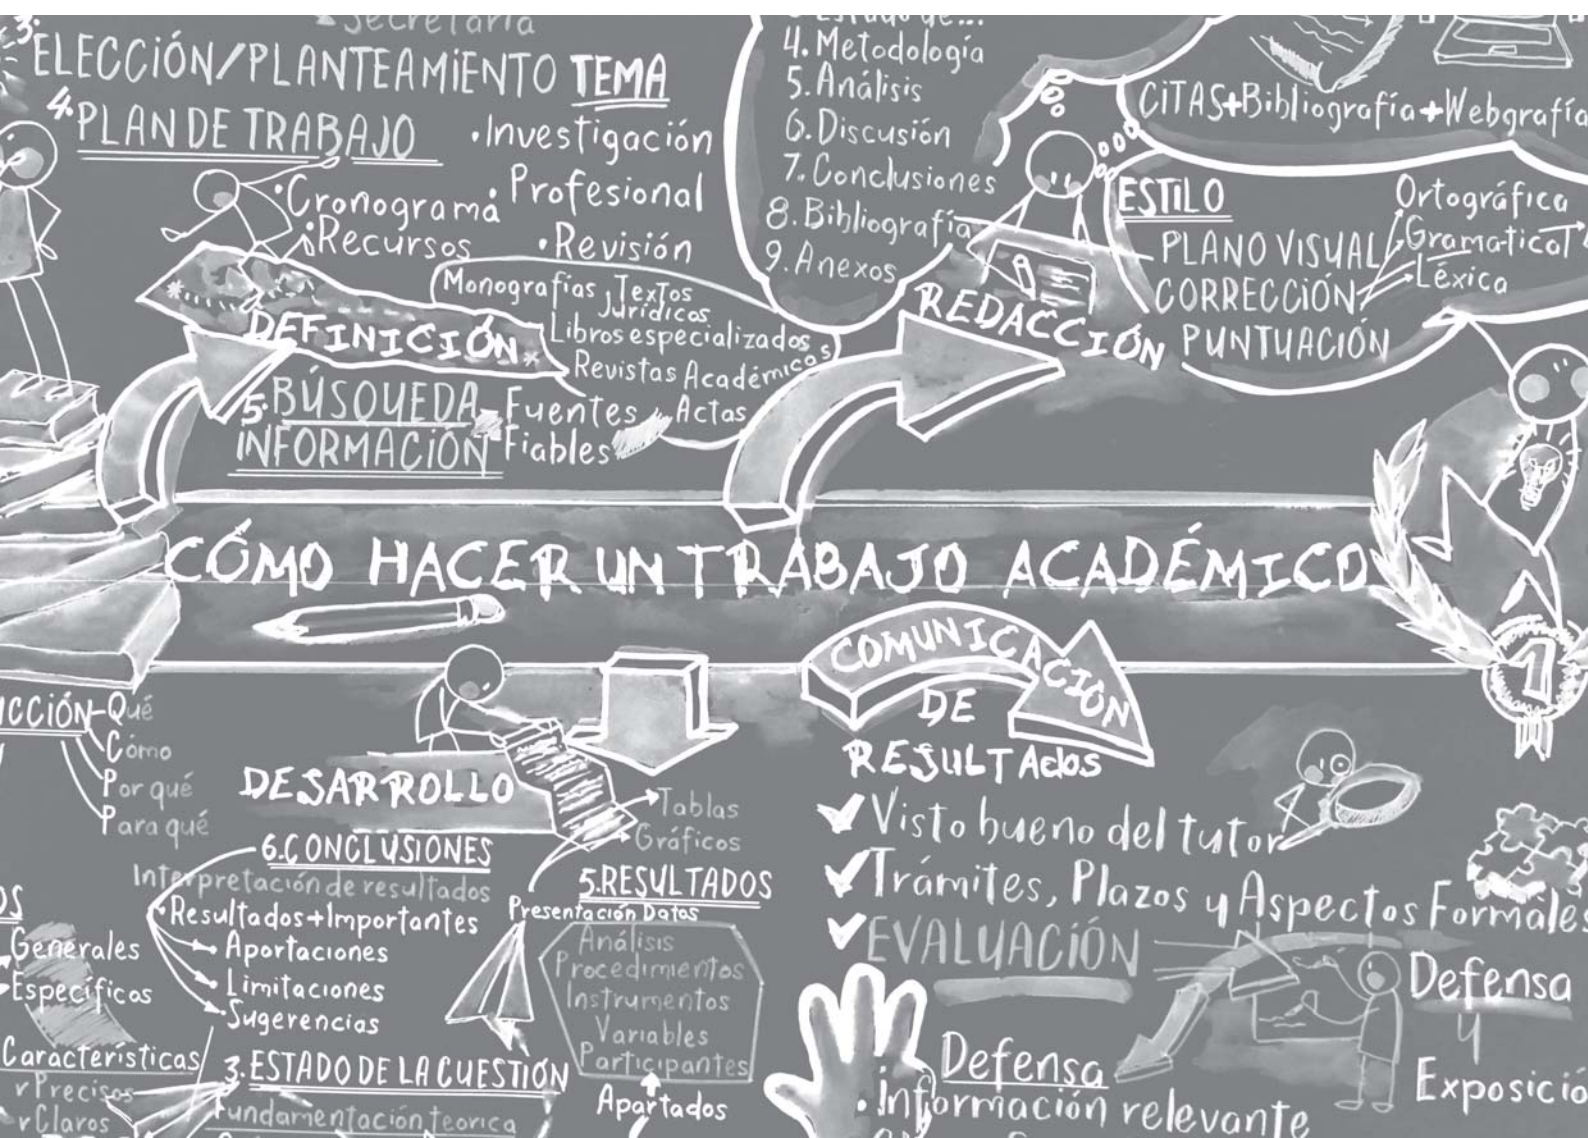 3.
Secretaría
ELECCIÓN/PLANTEAMIENTO TEMA
4. PLAN DE TRABAJO
• Cronograma
• Recursos
• Investigación
• Profesional
• Revisión
DEFINICIÓN
Monografías, Textos
Jurídicos
Libros especializados
Revistas Académicas
Actas
5. BÚSQUEDA
INFORMACIÓN
Fuentes
Fiables
4. Metodología
5. Análisis
6. Discusión
7. Conclusiones
8. Bibliografía
9. Anexos
REDACCIÓN
CITAS+Bibliografía+Webgrafía
ESTILO
PLANO VISUAL
CORRECCIÓN
PUNTUACIÓN
Ortográfica
Gramatical
Léxica
CÓMO HACER UN TRABAJO ACADÉMICO
1
CCIÓN
Qué
Cómo
Por qué
Para qué
DESARROLLO
Tablas
Gráficos
6. CONCLUSIONES
Interpretación de resultados
Resultados+Importantes
Aportaciones
Limitaciones
Sugerencias
5. RESULTADOS
Presentación Datos
Análisis
Procedimientos
Instrumentos
Variables
Participantes
Apartados
OS
Generales
Específicos
Características
Precisos
Claros
3. ESTADO DE LA CUESTIÓN
Fundamentación teorica
COMUNICACIÓN
DE
RESULTAdos
✓ Visto bueno del tutor
✓ Trámites, Plazos y Aspectos Formales
✓ EVALUACIÓN
Defensa
y
Exposició
Defensa
• Información relevante